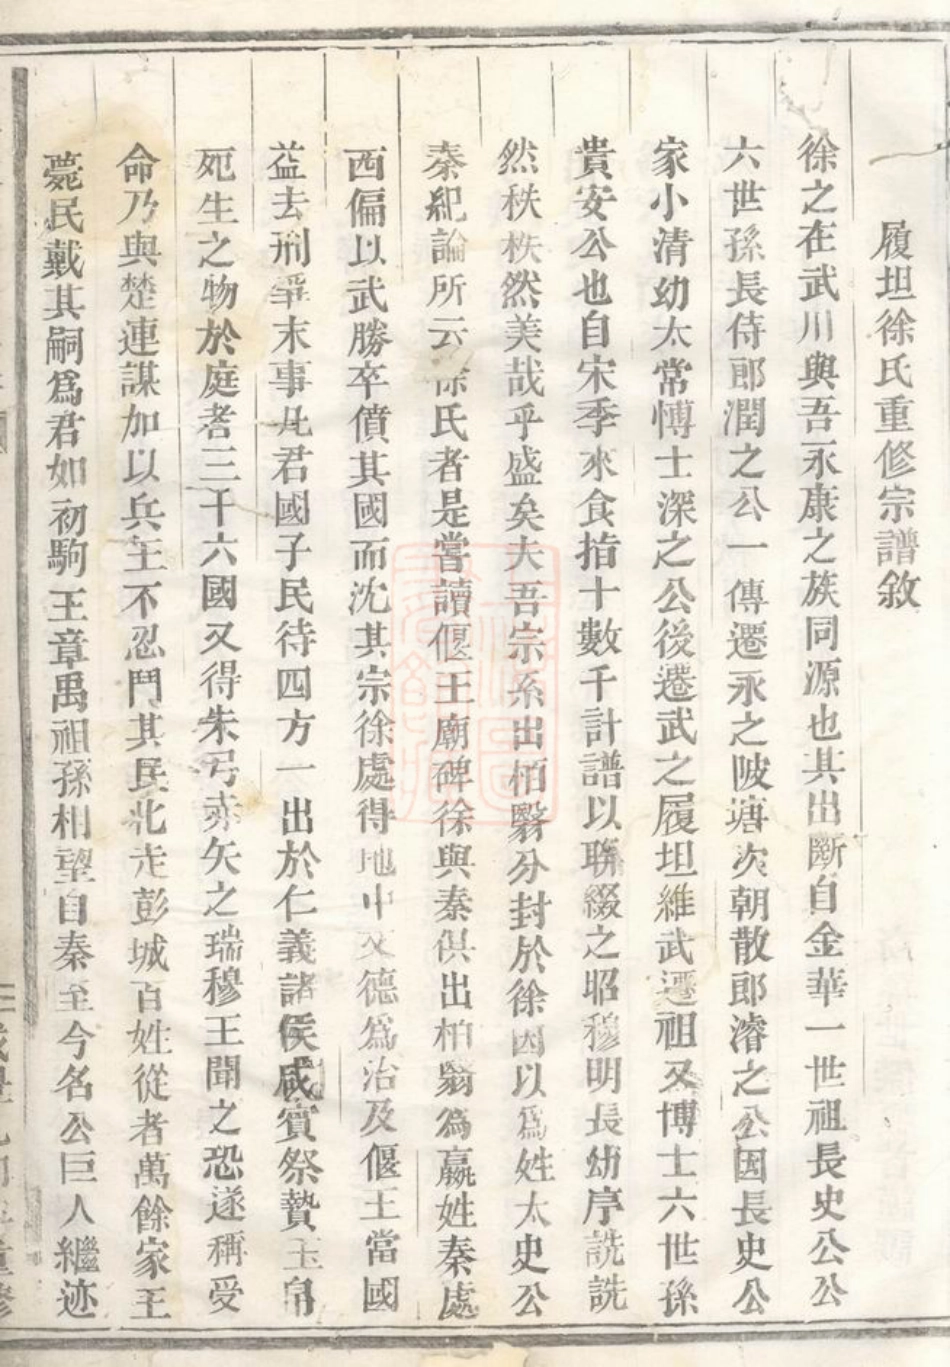 履坦徐氏重修宗譜敘
徐之在武川與吾永康之族同源也其出斷自金華一世祖長史公公
六世孫長侍郎潤之公一傳遷永之陂瑭次朝散郎濬之公因長史公
家小清幼太常愽士深之公後遷武之履坦維武遷祖又博士六世孫
貴安公也自宋季來食指十數千計譜以聯綴之昭穆明長幼序詵詵
然秩秩然美哉乎盛矣夫吾宗系出栢翳分封於徐因以爲姓太史公
秦紀論所云徐氏者是嘗讀偃王廟碑徐與秦俱出柏翳爲嬴姓秦處
西偏以武勝卒僨其國而沈其宗徐處得地中文德爲治及偃王當國
益去刑爭末事凡君國子民待四方一出於仁義諸侯咸賓祭贄玉帛
死生之物於庭者三十六國又得朱弓赤矢之瑞穆王聞之恐遂稱受
命乃與楚連謀加以兵王不忍鬥其民北走彭城百姓從者萬餘家王
薨民戴其嗣爲君如初駒王章禹祖孫相望自秦至今名公巨人繼迹